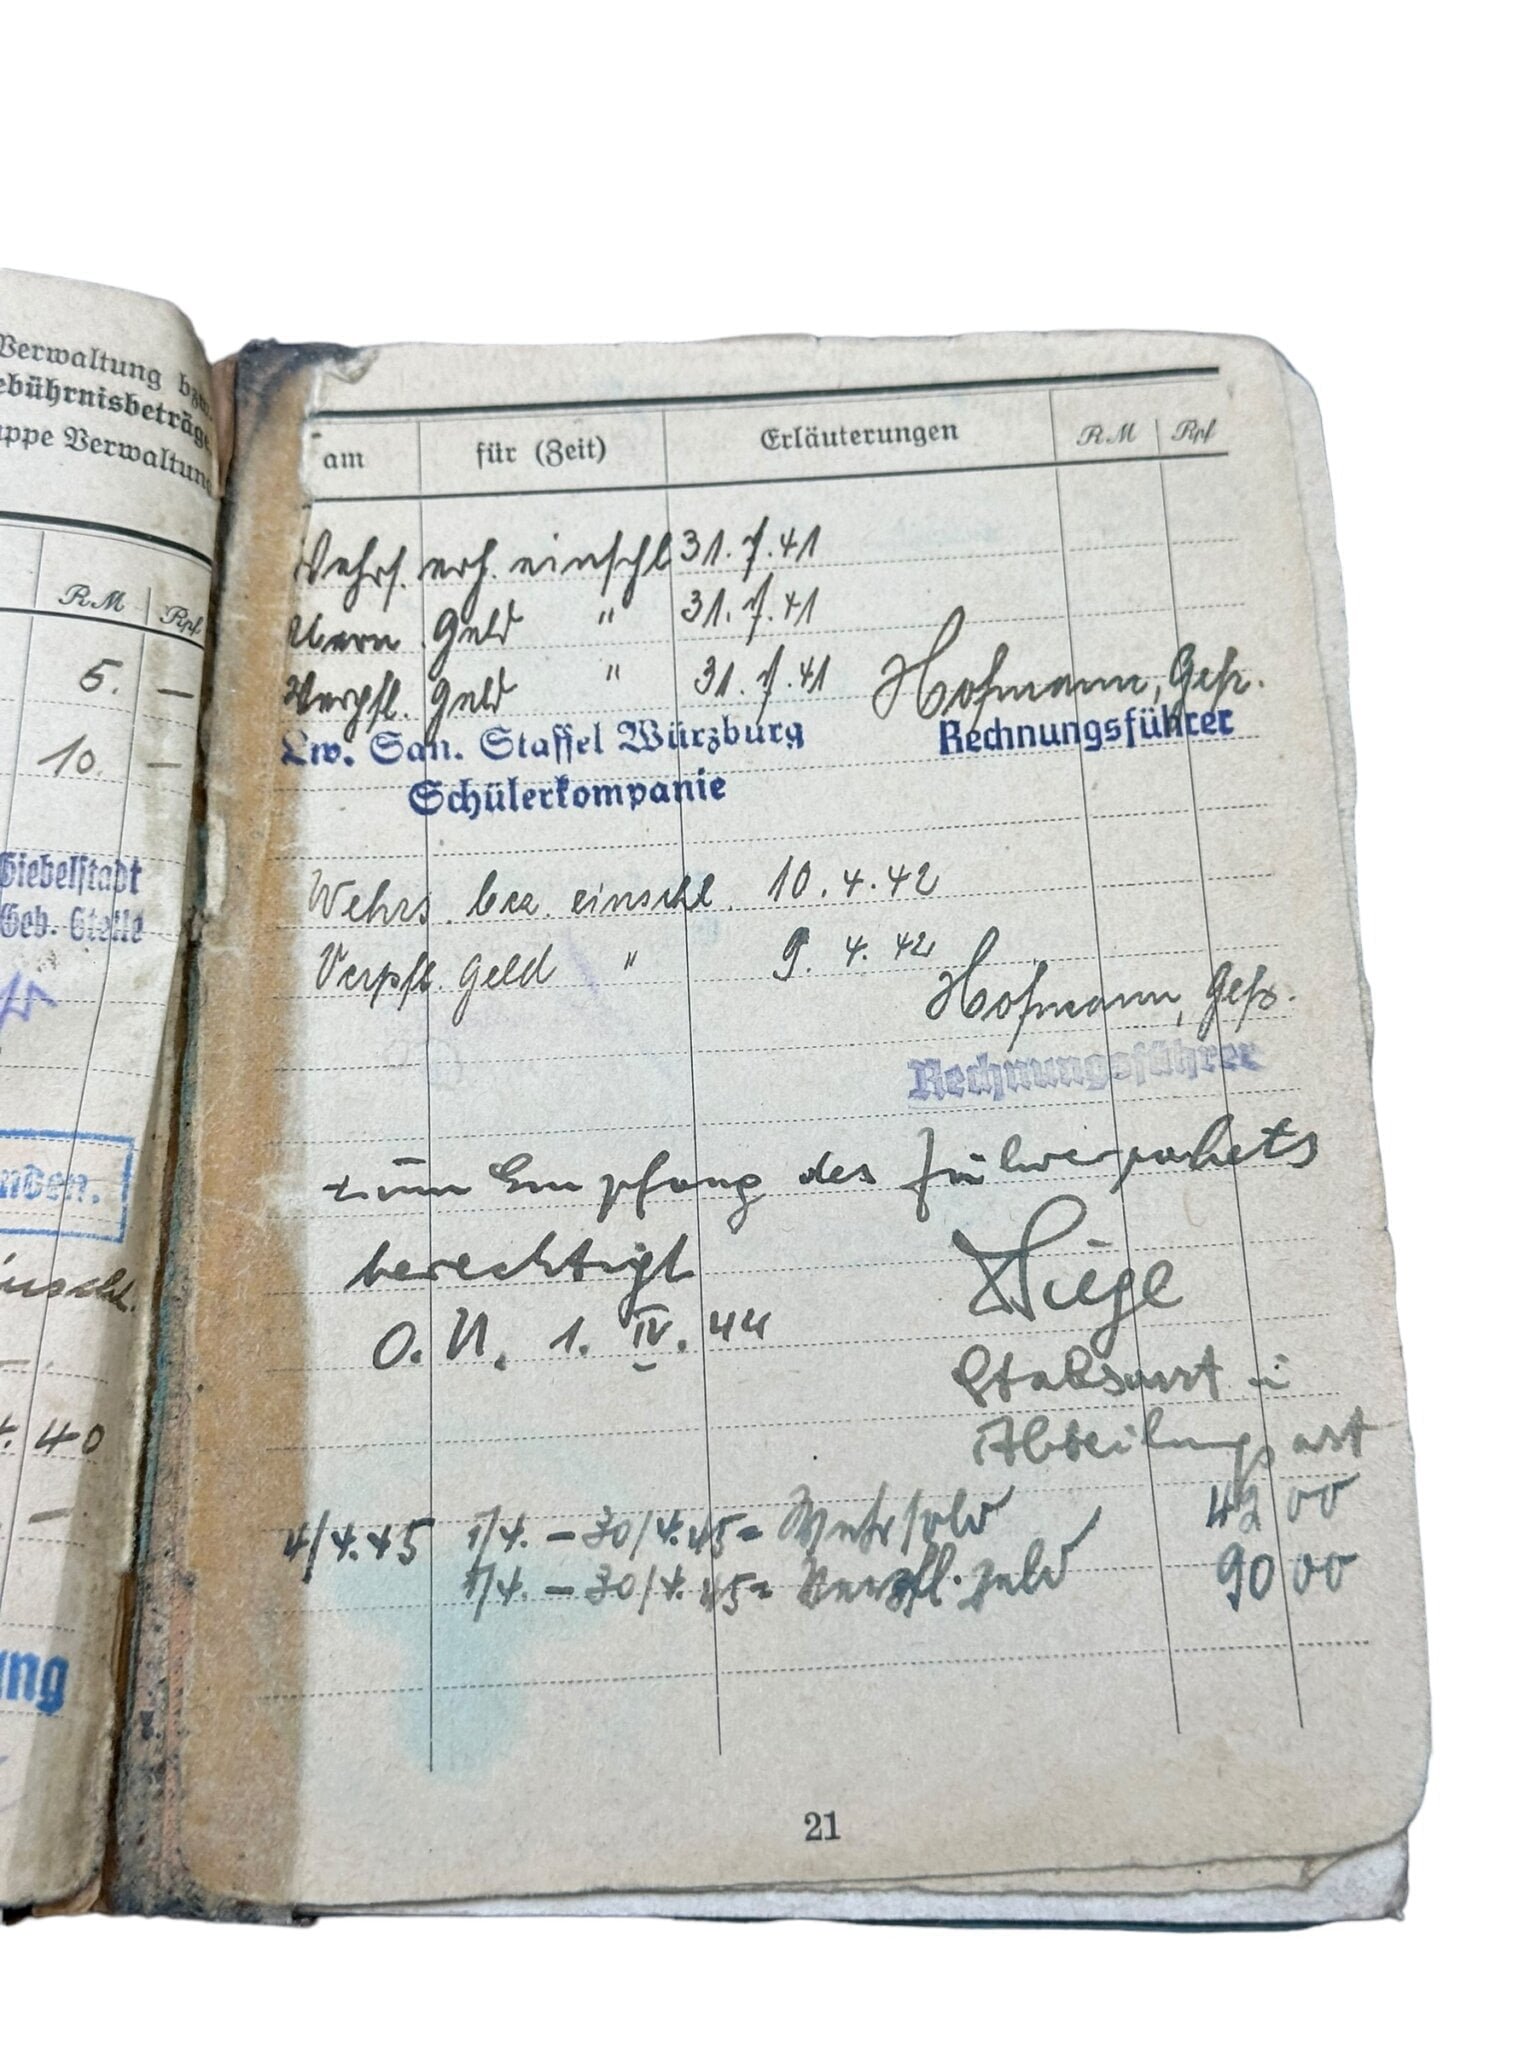 Verwaltung bzw.
ebührnisbeträge
uppe Verwaltung
RM Rpf
5. —
10. —
Giebelstadt
Geb. Stelle
nden.
4. 40
—
ung
am für (Zeit) Erläuterungen RM Rpf
Wehrs. erh. einschl 31.7.41
Geld " 31.7.41
Verpfl. Geld " 31.7.41 Hofmann, Gefr.
Lw. San. Staffel Würzburg Rechnungsführer
Schülerkompanie
Wehrs. bez. einschl. 10.4.42
Verpfl. Geld " 9.4.42
Hofmann, Gefr.
Rechnungsführer
zum Empfang des Führerpakets
berechtigt
O.U. 1. IV. 44
Stabsarzt u
Abteilungsarzt
4/4.45 1/4. – 30/4.45 = Wehrsold 42 00
1/4. – 30/4.45 = Verpfl. geld 90 00
21